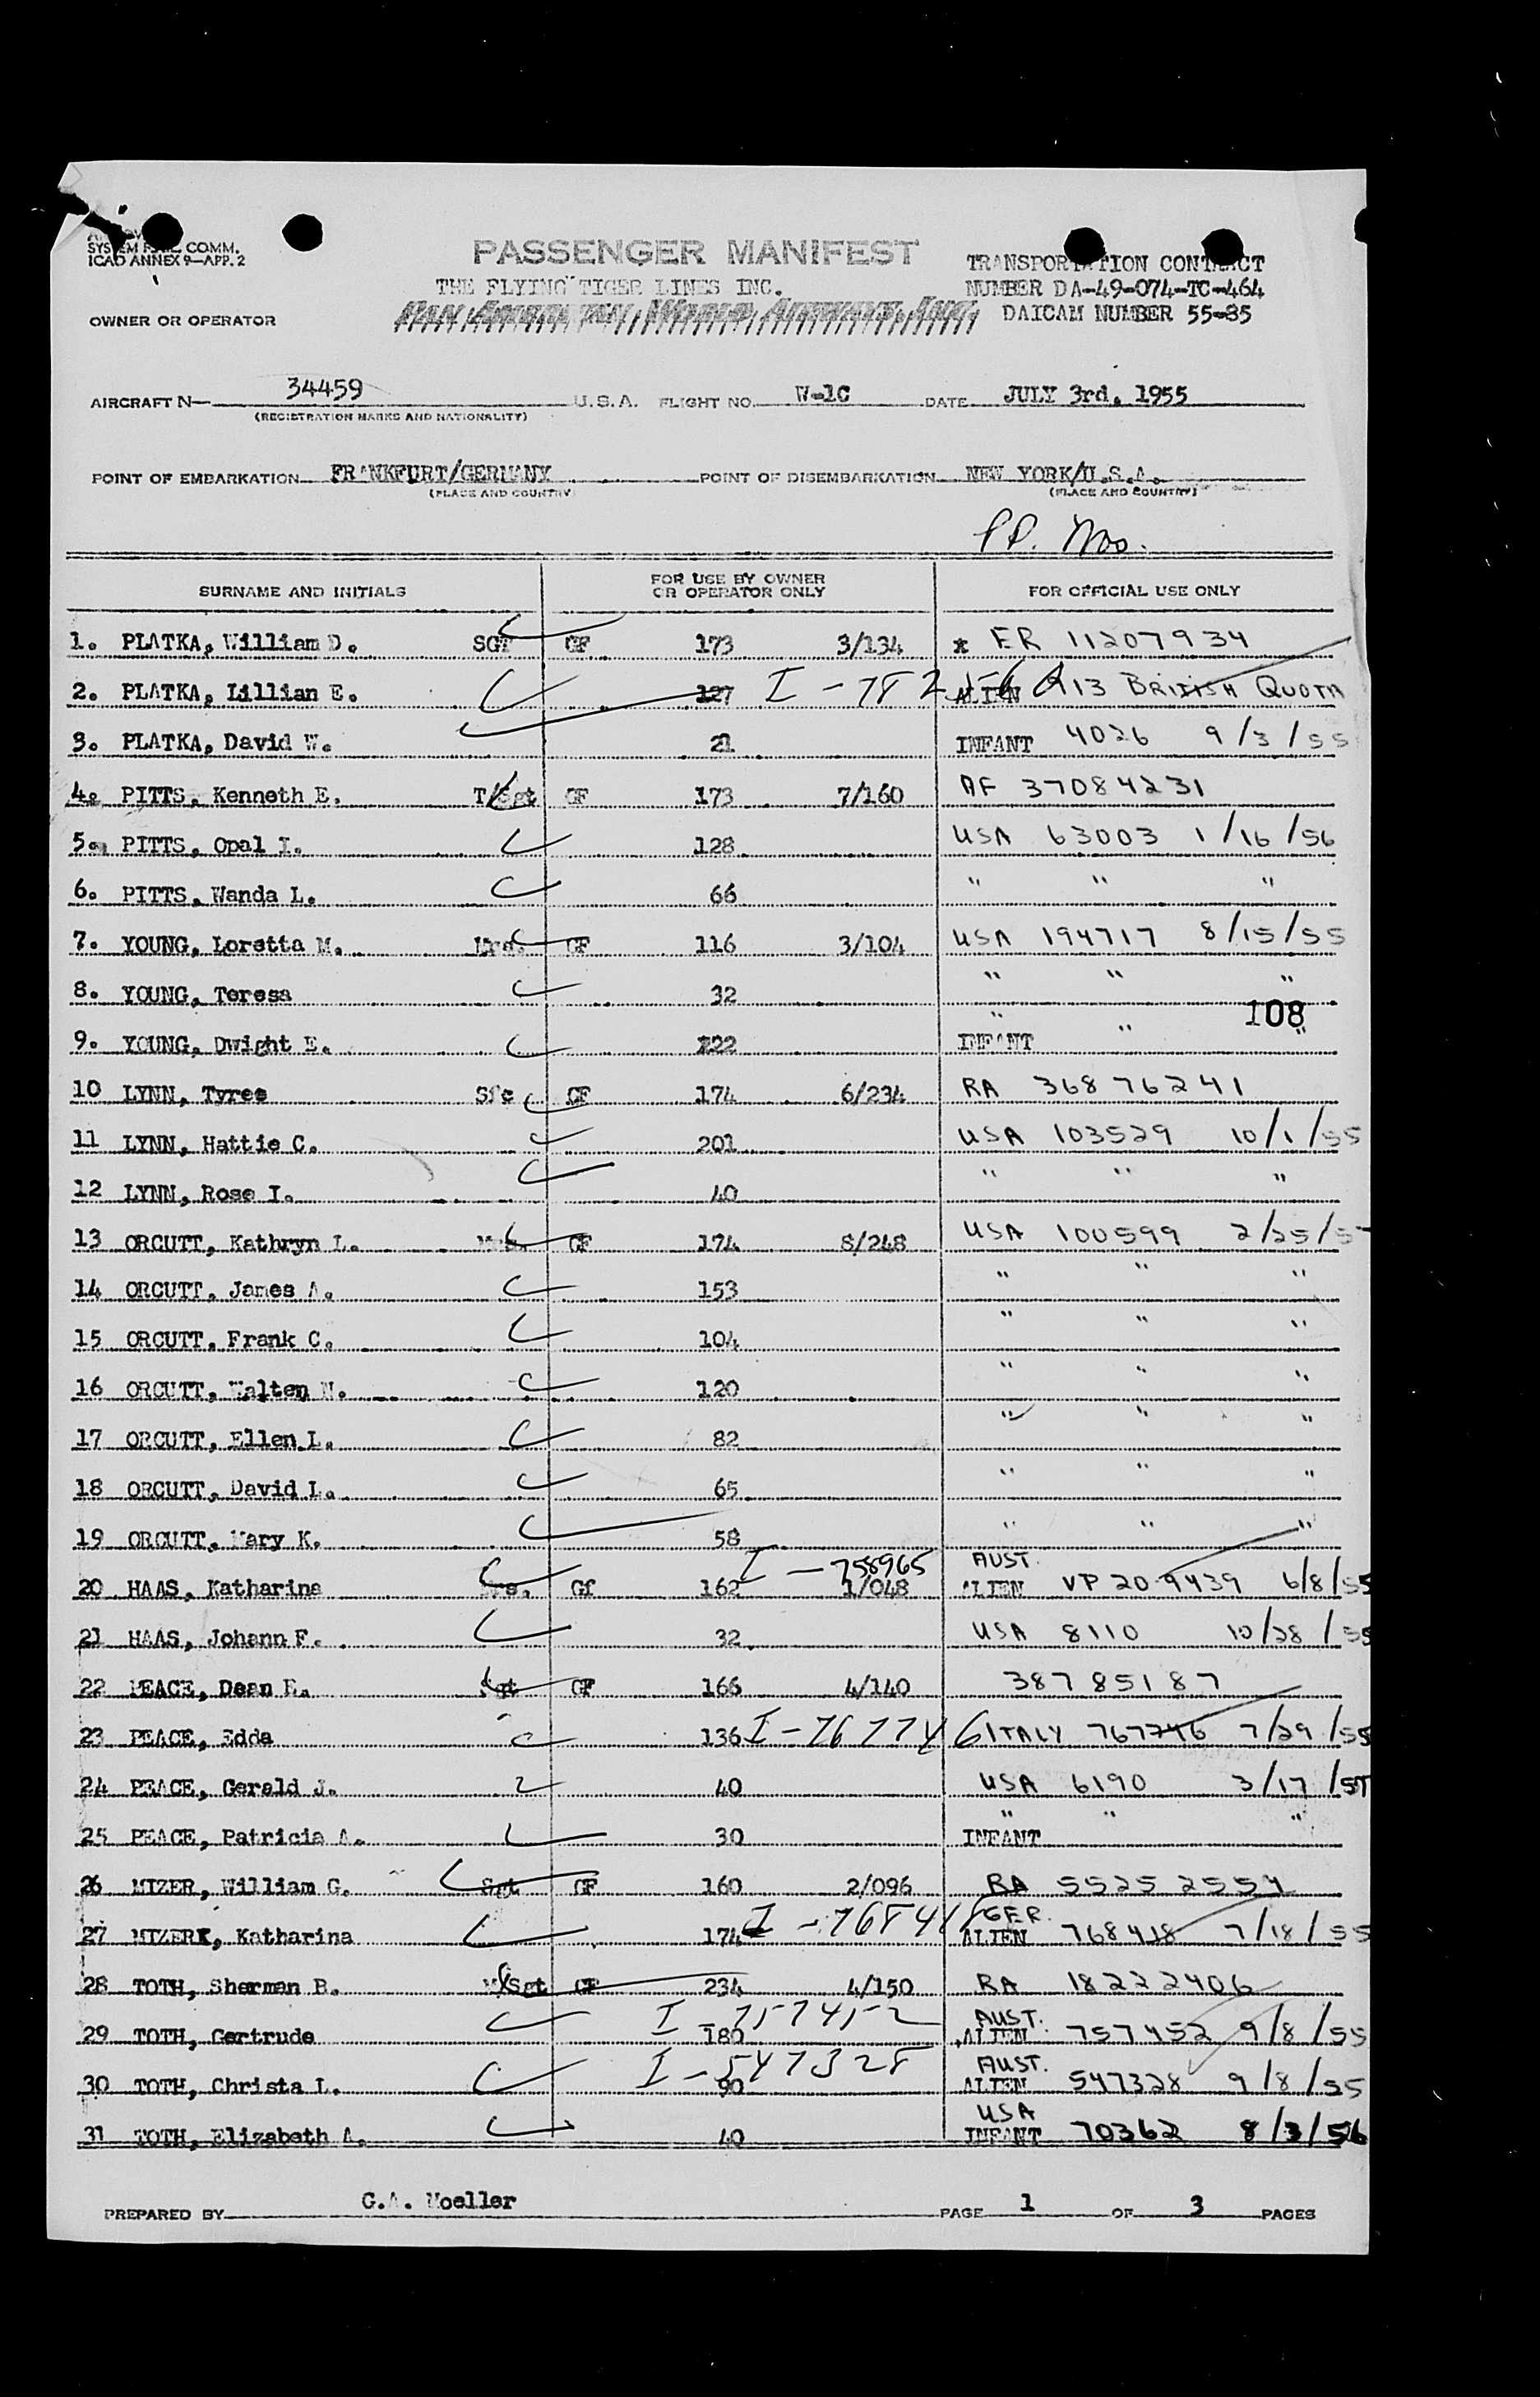 SYSTEM COMM.
ICAO ANNEX 9—APP. 2
PASSENGER MANIFEST
THE FLYING TIGER LINES INC.
TRANSPORTATION CONTRACT
NUMBER DA-49-074-TC-464
DAICAM NUMBER 55-85
OWNER OR OPERATOR
AIRCRAFT N— 34459 U.S.A. FLIGHT NO. W-1C DATE JULY 3rd. 1955
(REGISTRATION MARKS AND NATIONALITY)
POINT OF EMBARKATION FRANKFURT/GERMANY POINT OF DISEMBARKATION NEW YORK/U.S.A.
(PLACE AND COUNTRY) (PLACE AND COUNTRY)
PP. Nos.
SURNAME AND INITIALS FOR USE BY OWNER OR OPERATOR ONLY FOR OFFICIAL USE ONLY
1. PLATKA, William D. SGT GF 173 3/134 * ER 11207934
2. PLATKA, Lillian E. 127 ALIEN 913 BRITISH QUOTA
3. PLATKA, David W. 21 INFANT 4026 9/3/55
4. PITTS, Kenneth E. T/Sgt GF 173 7/160 AF 37084231
5. PITTS, Opal I. 128 USA 63003 1/16/56
6. PITTS, Wanda L. 66 " " "
7. YOUNG, Loretta M. Mrs. GF 116 3/104 USA 194717 8/15/55
8. YOUNG, Teresa 32 " " "
108
9. YOUNG, Dwight E. 22 INFANT " " "
10 LYNN, Tyree Sfc GF 174 6/234 RA 36876241
11 LYNN, Hattie C. 201 USA 103529 10/1/55
12 LYNN, Rose I. 40 " " "
13 ORCUTT, Kathryn L. Mrs. GF 174 8/248 USA 100599 2/25/5
14 ORCUTT, James A. 153 " " "
15 ORCUTT, Frank C. 104 " " "
16 ORCUTT, Walten N. 120 " " "
17 ORCUTT, Ellen L. 82 " " "
18 ORCUTT, David L. 65 " " "
19 ORCUTT, Mary K. 58 " " "
20 HAAS, Katharina Mrs. Gf 162 I-758965 1/048 AUST. ALIEN VP 209439 6/8/55
21 HAAS, Johann F. 32 USA 8110 10/28/55
22 PEACE, Dean E. Sgt GF 166 4/140 38785187
23 PEACE, Edda 136 I-767746 ITALY 767746 7/29/55
24 PEACE, Gerald J. 40 USA 6190 3/17/57
25 PEACE, Patricia A. 30 INFANT " " "
26 MIZER, William G. Sgt GF 160 2/096 RA 55252554
27 MIZER, Katharina 174 I-768418 GER. ALIEN 768418 7/18/55
28 TOTH, Sherman B. M/Sgt GF 234 4/150 RA 18222406
29 TOTH, Gertrude 180 I-757452 AUST. ALIEN 757452 9/8/55
30 TOTH, Christa L. 90 I-547328 AUST. ALIEN 547328 9/8/55
31 TOTH, Elizabeth A. 40 USA INFANT 70362 8/3/56
PREPARED BY G.A. Moeller PAGE 1 OF 3 PAGES